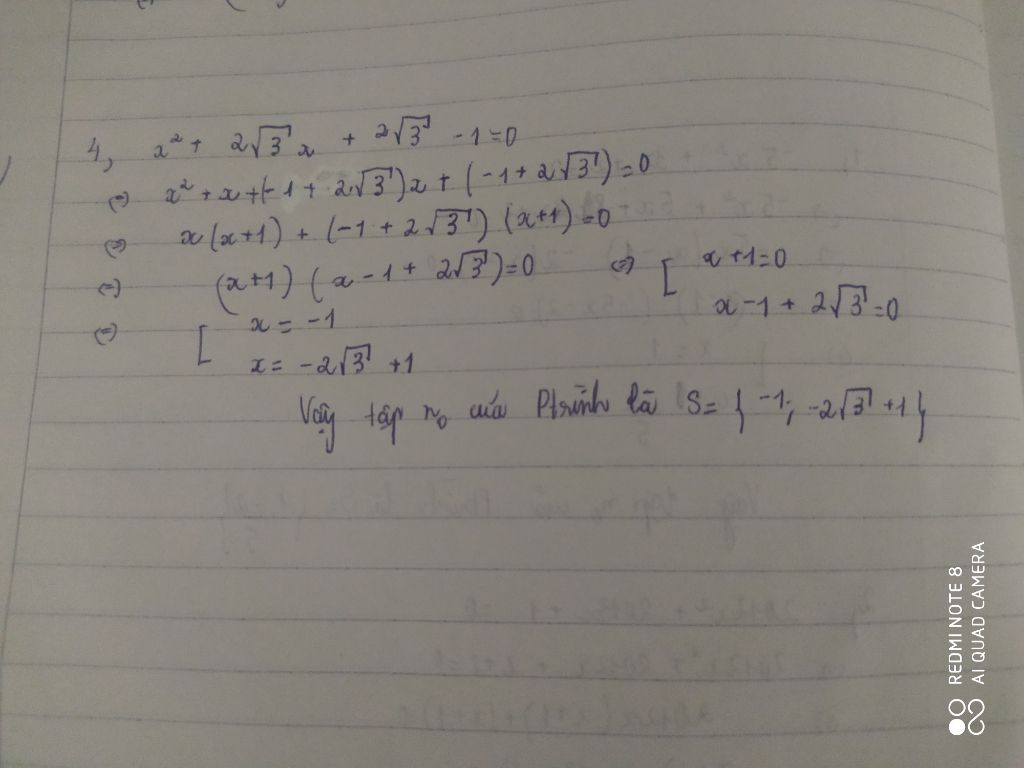 4, x² + 2√3 x + 2√3 - 1 = 0
⇔ x² + x + (-1 + 2√3)x + (-1 + 2√3) = 0
⇔ x(x+1) + (-1 + 2√3)(x+1) = 0
⇔ (x+1)(x - 1 + 2√3) = 0 ⇔ [ x + 1 = 0
x - 1 + 2√3 = 0
⇔ [ x = -1
x = -2√3 + 1
Vậy tập n₀ của Ptrình là S = { -1; -2√3 + 1 }
REDMI NOTE 8
AI QUAD CAMERA